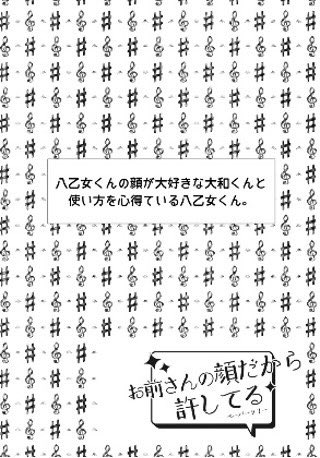 八乙女くんの顔が大好きな大和くんと
使い方を心得ている八乙女くん。
お前さんの顔だから
許してる